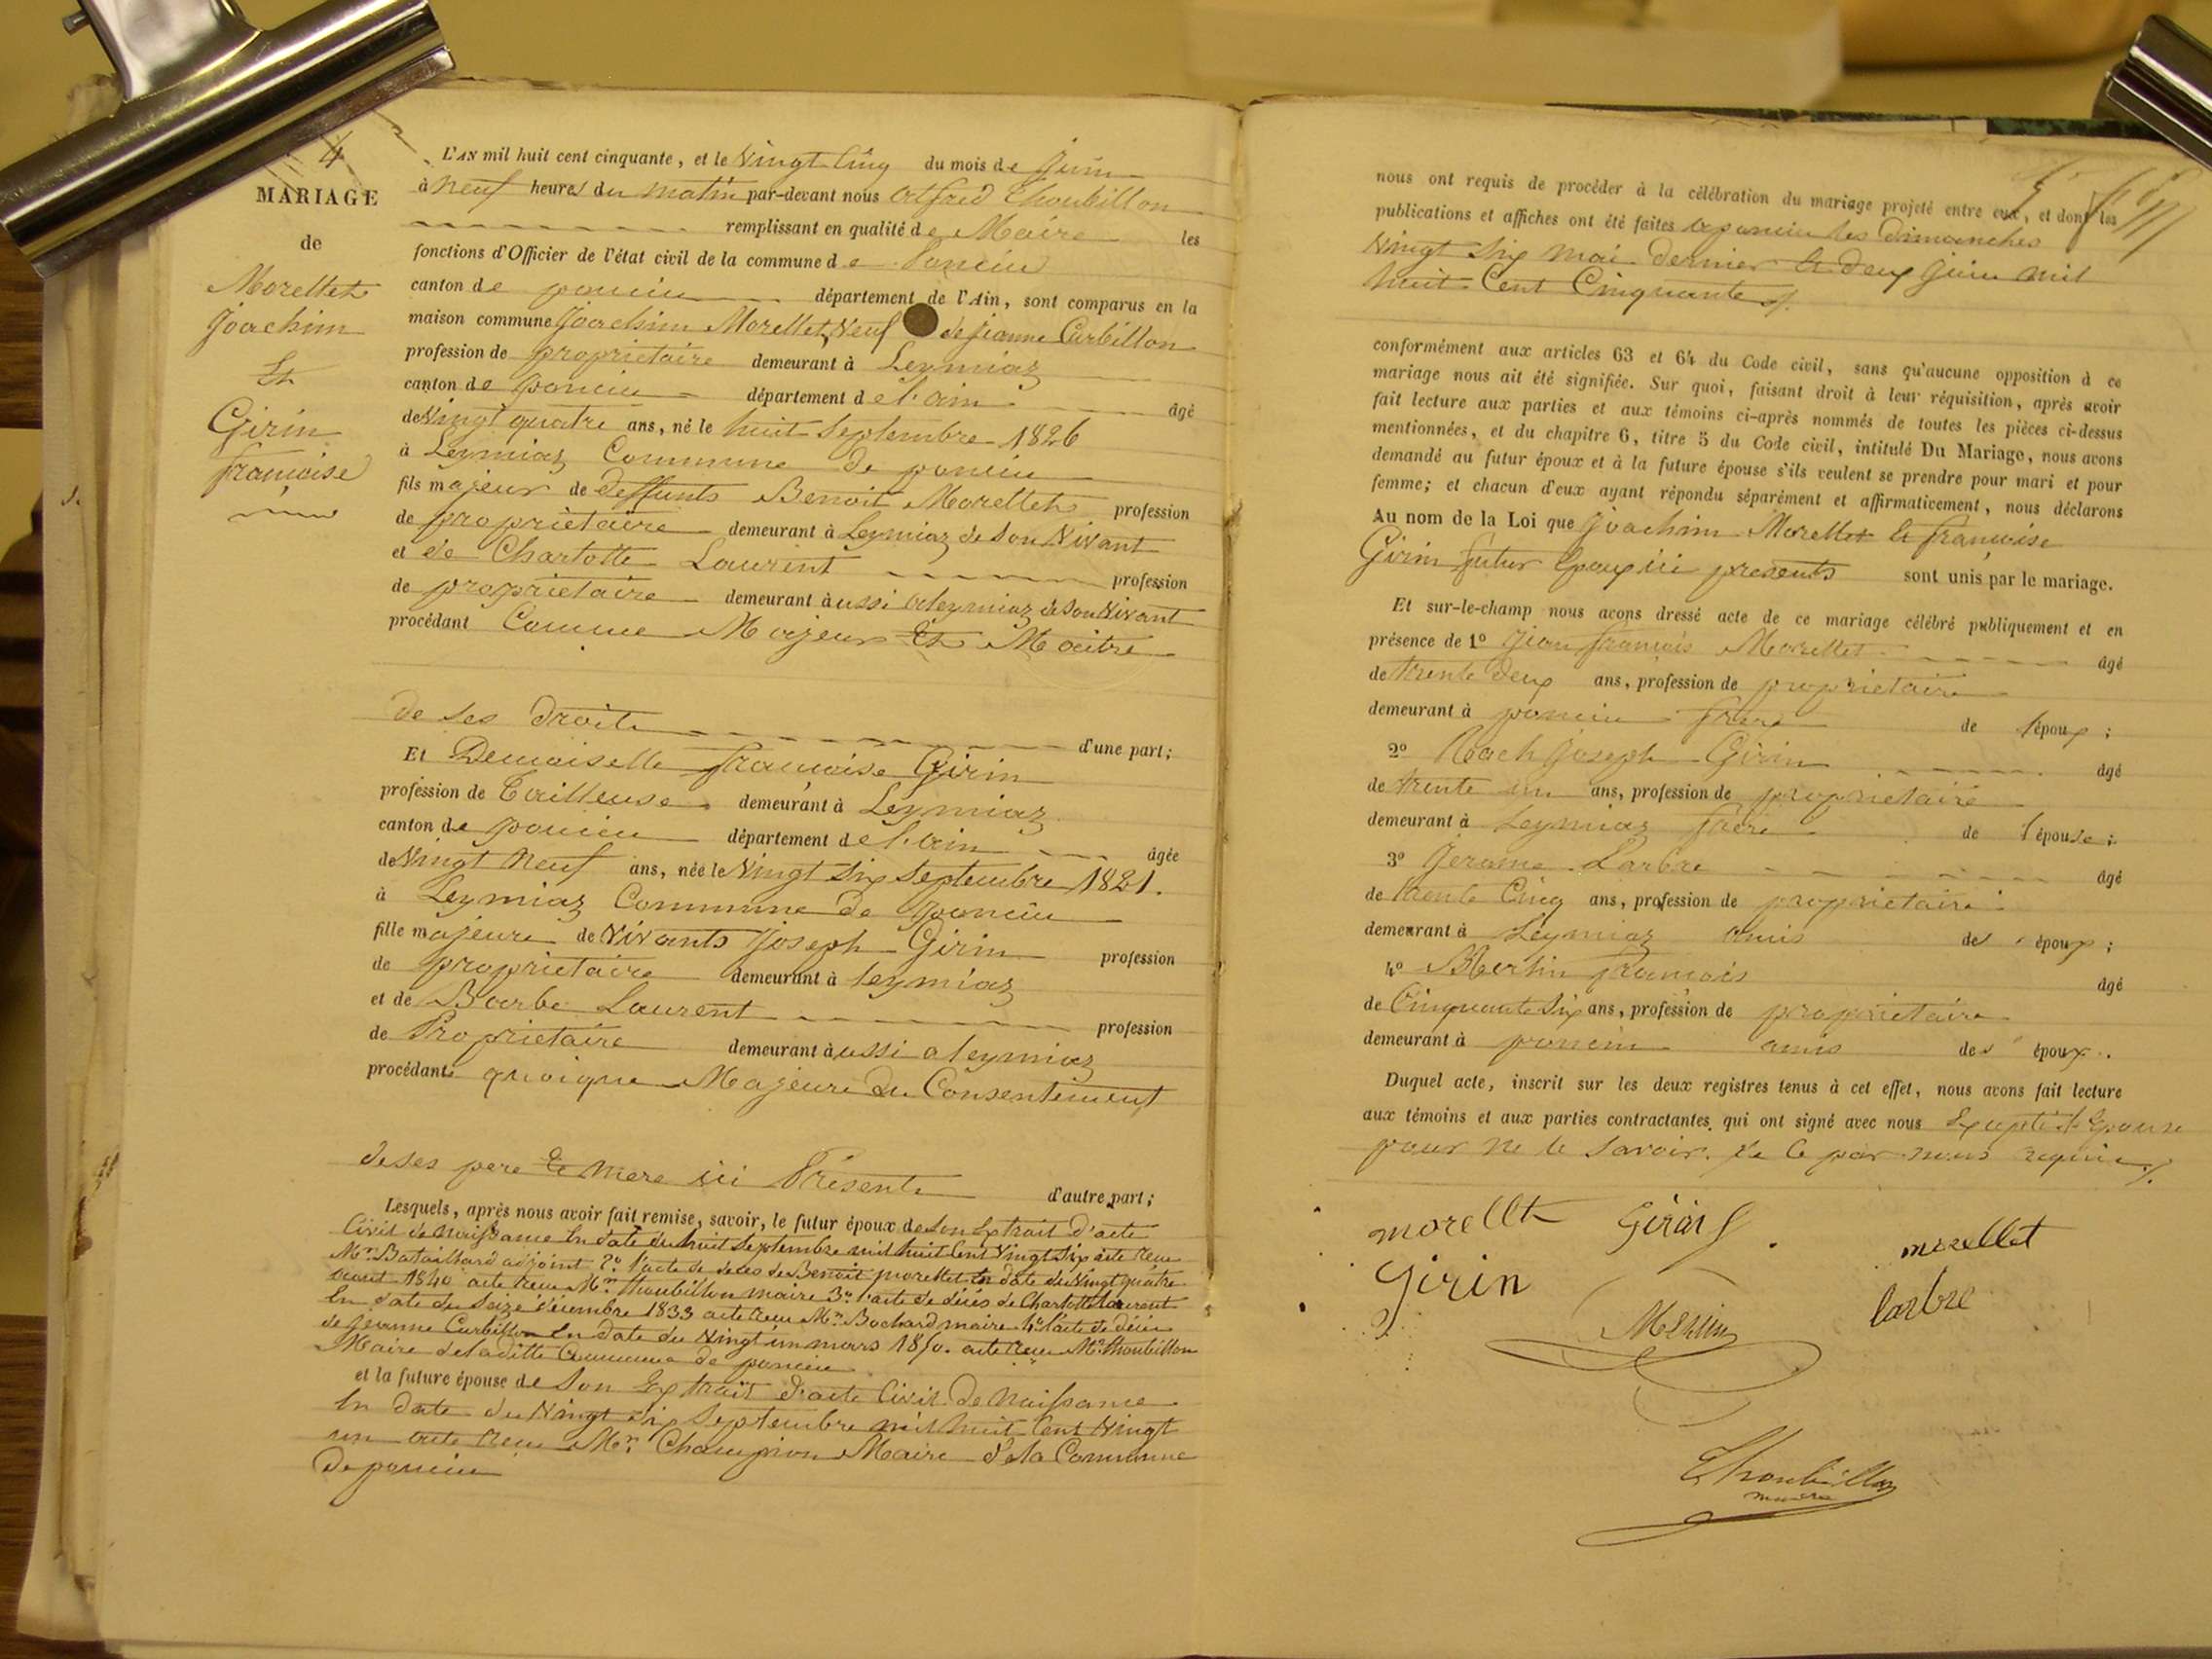 4
MARIAGE
de
Morellet
Joachim
Et
Girin
françoise
L'AN mil huit cent cinquante, et le Vingt Cinq du mois de Juin
à Neuf heures du matin par-devant nous Alfred Thoubillon
remplissant en qualité de Maire les
fonctions d'Officier de l'état civil de la commune de Poncin
canton de poncin département de l'Ain, sont comparus en la
maison commune Joachim Morellet, Veuf de jeanne Curbillon
profession de propriétaire demeurant à Leymiaz
canton de poncin département de l'ain âgé
de Vingt quatre ans, né le huit Septembre 1826
à Leymiaz Commune de poncin
fils majeur de deffunts Benoit Morellet profession
de propriétaire demeurant à Leymiaz de son Vivant
et de Charlotte Laurent profession
de propriétaire demeurant à aussi a leymiaz de son Vivant
procédant Comme Majeur Et Maitre
de ses droits d'une part;
Et Demoiselle françoise Girin
profession de Tailleuse demeurant à Leymiaz
canton de poncin département de l'ain âgée
de Vingt Neuf ans, née le Vingt Six Septembre 1821.
à Leymiaz Commune de poncin
fille majeure de Vivants Joseph Girin profession
de propriétaire demeurant à leymiaz
et de Barbe Laurent profession
de Propriétaire demeurant à aussi a leymiaz
procédante quoique Majeure du Consentement
de ses pere et mere ici Présents d'autre part;
Lesquels, après nous avoir fait remise, savoir, le futur époux de son Extrait d'acte
Civil de Naissance En date du huit Septembre mil huit Cent Vingt Six acte reçu
Mr. Bataillard adjoint 2º l'acte de deces de Benoit Morellet En date du Vingt quatre
aout 1840 acte reçu Mr. Thoubillon maire 3º l'acte de décès de Charlotte Laurent
En date du Seize décembre 1833 acte reçu Mr. Bochard maire 4º l'acte de décès
de Jeanne Curbillon En date du Vingt un mars 1850. acte reçu Mr. Thoubillon
Maire de laditte Commune de poncin
et la future épouse de Son Extrait d'acte Civil de Naissance
En date du Vingt Six Septembre mil huit Cent Vingt
un acte reçu Mr. Champion Maire de la Commune
de poncin
nous ont requis de procéder à la célébration du mariage projeté entre eux, et dont les
publications et affiches ont été faites a poncin les dimanches
Vingt Six Mai dernier et deux Juin mil
huit Cent Cinquante
conformément aux articles 63 et 64 du Code civil, sans qu'aucune opposition à ce
mariage nous ait été signifiée. Sur quoi, faisant droit à leur réquisition, après avoir
fait lecture aux parties et aux témoins ci-après nommés de toutes les pièces ci-dessus
mentionnées, et du chapitre 6, titre 5 du Code civil, intitulé Du Mariage, nous avons
demandé au futur époux et à la future épouse s'ils veulent se prendre pour mari et pour
femme; et chacun d'eux ayant répondu séparément et affirmativement, nous déclarons
Au nom de la Loi que Joachim Morellet et françoise
Girin futur Epoux ici presents sont unis par le mariage.
Et sur-le-champ nous avons dressé acte de ce mariage célébré publiquement et en
présence de 1º Jean françois Morellet âgé
de trente deux ans, profession de propriétaire
demeurant à poncin frere de l'époux;
2º Roch Joseph Girin âgé
de trente un ans, profession de propriétaire
demeurant à Leymiaz frere de l'épouse;
3º Jerome Larbre âgé
de trente Cinq ans, profession de propriétaire
demeurant à Leymiaz amis des époux;
4º Merlin françois âgé
de Cinquante Six ans, profession de propriétaire
demeurant à poncin amis des époux.
Duquel acte, inscrit sur les deux registres tenus à cet effet, nous avons fait lecture
aux témoins et aux parties contractantes, qui ont signé avec nous Excepté l'Epouse
pour ne le Savoir. de ce par nous requis
morellt Girin J morellet
Girin Merlin larbre
Thoubillon
maire